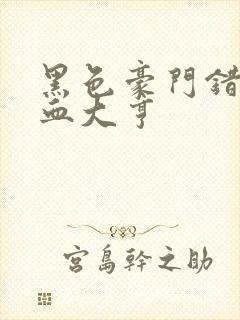 黑色豪門錯
血大亨
宮島幹之助